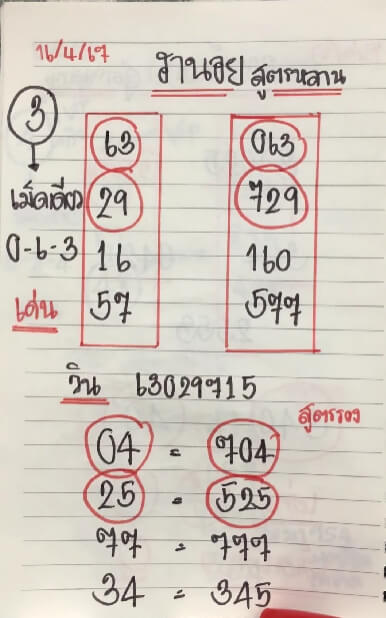 16/4/67
ฮานอย สูตรหลาน
3
63 063
เม็ดเดียว 29 729
0-6-3 16 160
เด่น 57 577
วิน 63029715
สูตรรอง
04 = 704
25 = 525
77 = 777
34 = 345